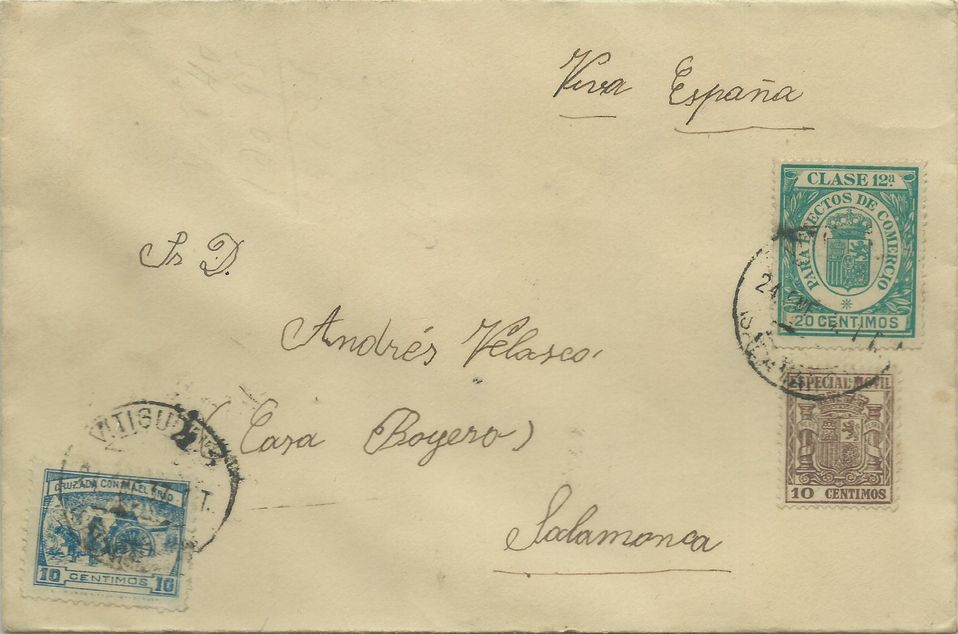 Viva España
CLASE 12ª
PARA EFECTOS DE COMERCIO
20 CENTIMOS
24 ENE
Sr D.
Andrés Velasco
(Casa Boyero)
Salamanca
ESPECIAL MOVIL
10 CENTIMOS
VITIGU
CRUZADA CONTRA EL FRIO
10 CENTIMOS 10